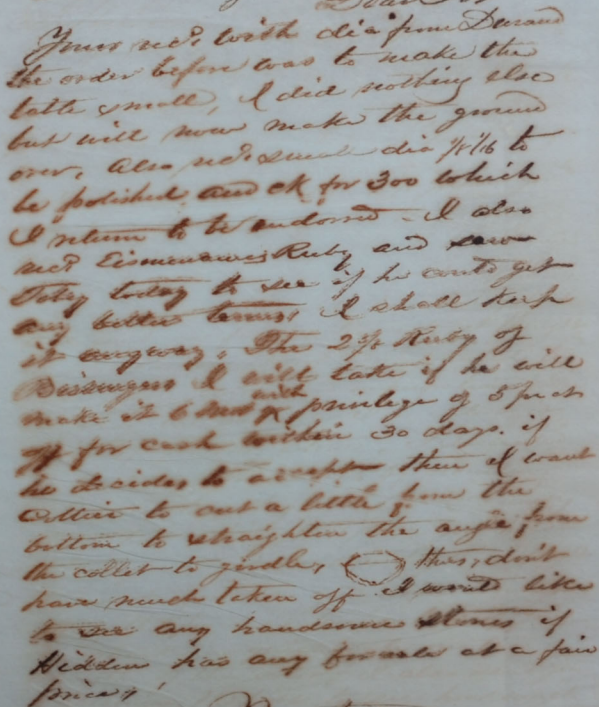 Dear Sir
Yours recd. with dia from Durand
the order before was to make the
table small, I did nothing else
but will now make the ground
over, Also recd. small dia 7/8 1/16 to
be polished and ck for 300 which
I return to be endorsed - I also
recd Eisman's Ruby and saw
today to see if he could get
any better terms, I shall keep
it anyway, The 2 3/8 Ruby of
I will take if he will
make it 6 mos with privilege of 5 pr ct
off for cash within 30 days. if
he decides to accept then I want
to cut a little from the
bottom to straighten the angle from
the collet to girdle, thus, don't
have much taken off I would like
to see any handsome stones if
Hidden has any for sale at a fair
price,